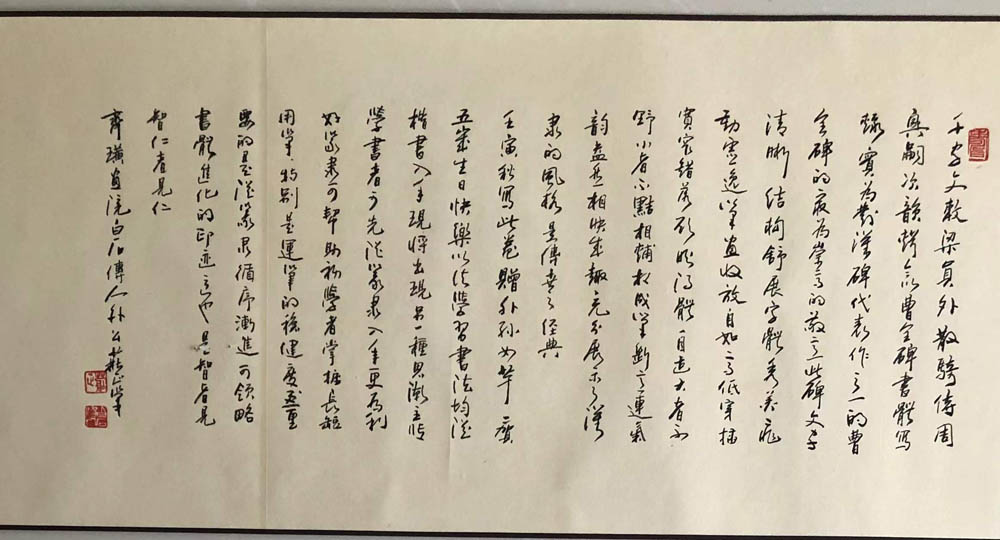 千字文敕梁員外散騎侍周
興嗣次韻聲今以曹全碑書體寫
錄實為對漢碑代表作之一的曹
全碑的最為崇高的敬意此碑文字
清晰結構舒展字體秀美飛
動靈逸筆畫收放自如高低穿插
寬窄錯落形成得體自造大者不
野小者不黯相輔相成筆斷意連氣
韻盎然相映成趣充分展示了漢
隸的風格是傳世之經典
壬寅秋寫此卷贈外孫女 慶
五歲生日快樂以往學習書法均從
楷書入手現時出現另一種思潮主張
學書者可先從篆隸入手更為利
好篆隸可幫助初學者掌握長短
用筆特別是運筆的穩健度至重
要的是從篆隸循序漸進可領略
書體進化的印迹之也是智者見
智仁者見仁
齊璜畫院白石傳人外公